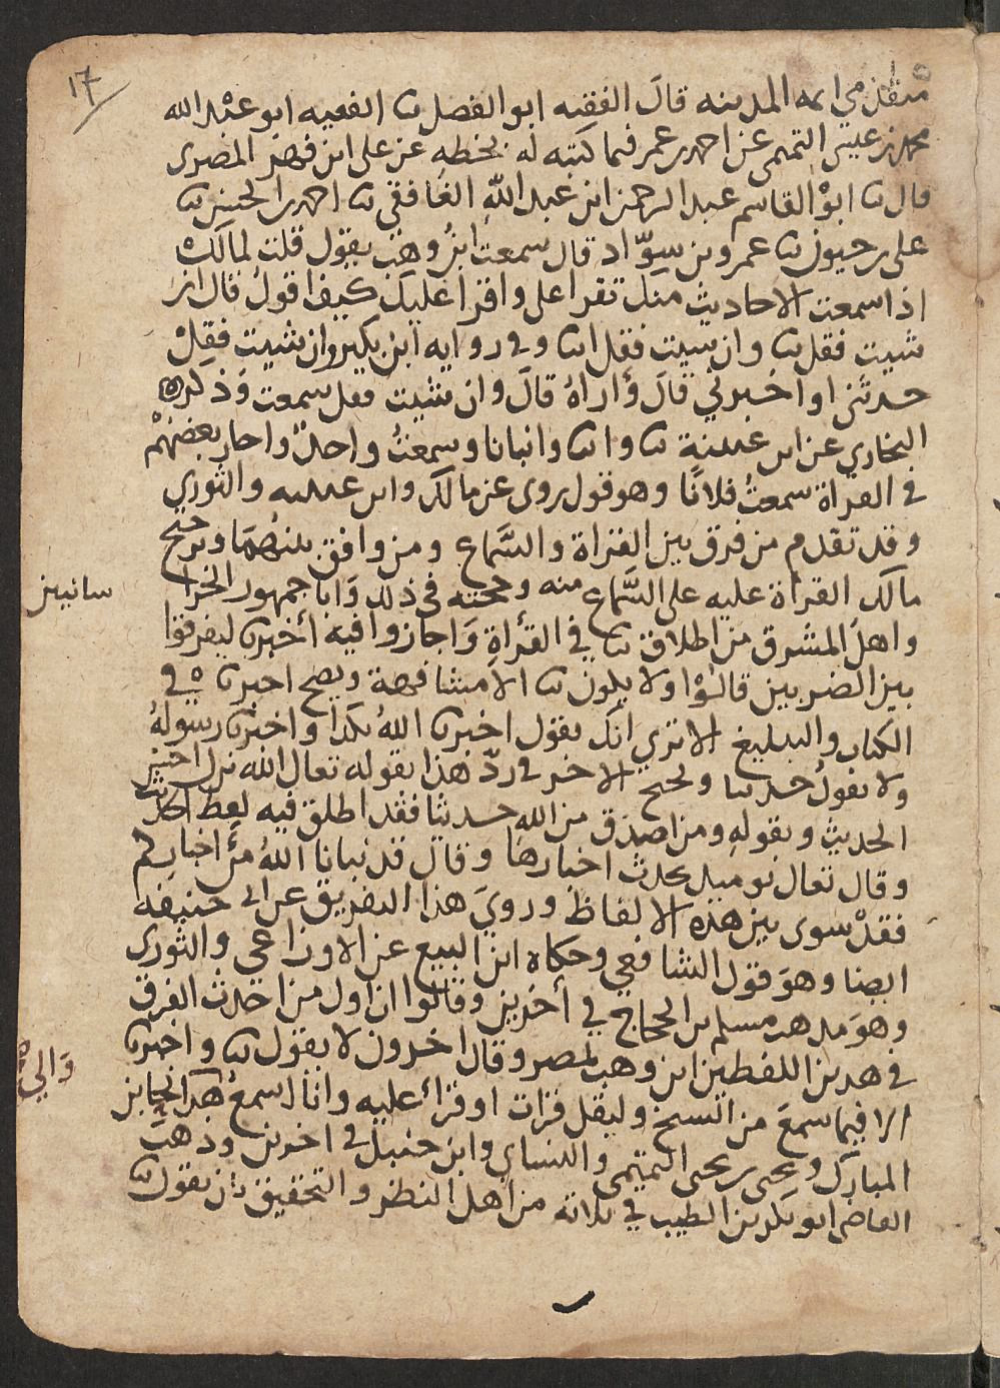 ١٧
متقدمي ايمه المدينه قالَ الفقيه ابو الفضل ثنا الفقيه ابو عبْد الله
محمد بن عيسى التميمي عن احمد بن عمر فيما كتبه له بخطه عن علي ابن فهر المصري
قال ثنا ابوْ القاسم عبد الرحمن ابن عبد اللّٰه الغافقي ثنا احمد بن الحسن ثنا
علي بن حيون ثنا عمرو بن سوّاد قال سمعتُ ابنُ وهب يقول قلت لمالكْ
اذا سمعت الاحاديث منك تقرا علي واقرا عليك كيف اقولُ قال ان
شيت فقل ثنا وان شيت فقل انا وفي روايه ابن بكير وان شيت فقلْ
حدثني او اخبرني قالَ وأراهُ قالَ وان شيت فقل سمعت وَذكره
البخاري عن ابن عيينة ثنا وانا وانبانا وسمعتُ واحدٌ واجاز بعضهمْ
في القراة سمعتُ فلانًا وهو قول روى عن مالك وابن عيينه والثوري
وقد تقدم من فرق بين القراة والسَّماع ومن وافق بينهُمَا وترجيح
مالك القراة عليه على السَّماع منه وحجته في ذلك وَابا جمهور الخرا
سانيين
واهلَ المشرق من اطلاق ثنا في القرأةِ وَاجازوا فيه أخبرنا ليفرقوا
بين الضربين قالوْا ولا يكون ثنا الا مشافهة ويصح اخبرنا في
الكتاب والتبليغ الا ترى انك تقول اخبرنا اللهُ بكذا واخبرنا رسولهُ
ولا تقولُ حدثنا ويحتج الاخر في ردّ هذا بقوله تعالى الله نزل احسن
الحديث وبقولهِ ومن اصدق من اللهِ حديثًا فقد اطلق فيه لفظ الحديث
وقال تعالى يوميذ تحدث اخبارها وقال قد نبانا اللهُ منْ اخباركم
فقدْ سوى بين هذه الالفاظ وروِيَ هذا التفريق عن ابى حنيفه
ايضا وهوَ قول الشافعي وحكاه ابن البيع عن الاوزاعي والثورى
وهوَ مذهب مسلم بن الحجاج في أخرين وقالوا ان اول من احدث الفرق
في هدين اللفظين ابن وهب بمصر وقال اخرون لا يقول ثنا واخبرنا
وَالىْ
الا فيما سمعَ من الشيخ وليقل قرات او قرئ عليه وانا اسمع هذا ابن
المبارك ويحيى بن يحيى التميمي والنساي وابن حنبل في اخرين وذهبَ
القاضي ابو بكر بن الطيب في ثلاثه من اهل النظر والتحقيق بان يقول ثنا